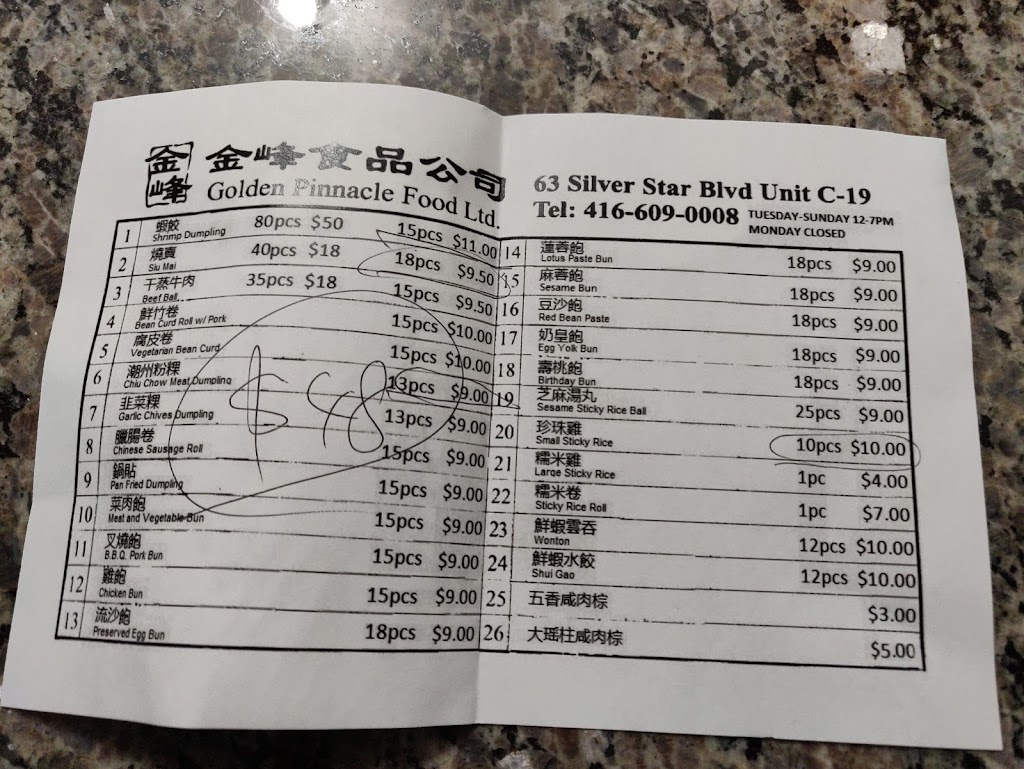 金峰
金峰食品公司
Golden Pinnacle Food Ltd.
1 蝦餃 80pcs $50 15pcs $11.00
Shrimp Dumpling
2 燒賣 40pcs $18 18pcs $9.50
Siu Mai
3 干蒸牛肉 35pcs $18 15pcs $9.50
Beef Ball
4 鮮竹卷 15pcs $10.00
Bean Curd Roll w/ Pork
5 腐皮卷 15pcs $10.00
Vegetarian Bean Curd
6 潮州粉粿 13pcs $9.00
Chiu Chow Meat Dumpling
7 韭菜粿 13pcs $9.00
Garlic Chives Dumpling
8 臘腸卷 15pcs $9.00
Chinese Sausage Roll
9 鍋貼 15pcs $9.00
Pan Fried Dumpling
10 菜肉飽 15pcs $9.00
Meat and Vegetable Bun
11 叉燒飽 15pcs $9.00
B.B.Q. Pork Bun
12 雞飽 15pcs $9.00
Chicken Bun
13 流沙飽 18pcs $9.00
Preserved Egg Bun
$48
63 Silver Star Blvd Unit C-19
Tel: 416-609-0008 TUESDAY-SUNDAY 12-7PM
MONDAY CLOSED
14 蓮蓉飽 18pcs $9.00
Lotus Paste Bun
15 麻蓉飽 18pcs $9.00
Sesame Bun
16 豆沙飽 18pcs $9.00
Red Bean Paste
17 奶皇飽 18pcs $9.00
Egg Yolk Bun
18 壽桃飽 18pcs $9.00
Birthday Bun
19 芝麻湯丸 25pcs $9.00
Sesame Sticky Rice Ball
20 珍珠雞 10pcs $10.00
Small Sticky Rice
21 糯米雞 1pc $4.00
Large Sticky Rice
22 糯米卷 1pc $7.00
Sticky Rice Roll
23 鮮蝦雲吞 12pcs $10.00
Wonton
24 鮮蝦水餃 12pcs $10.00
Shui Gao
25 五香咸肉棕 $3.00
26 大瑤柱咸肉棕 $5.00